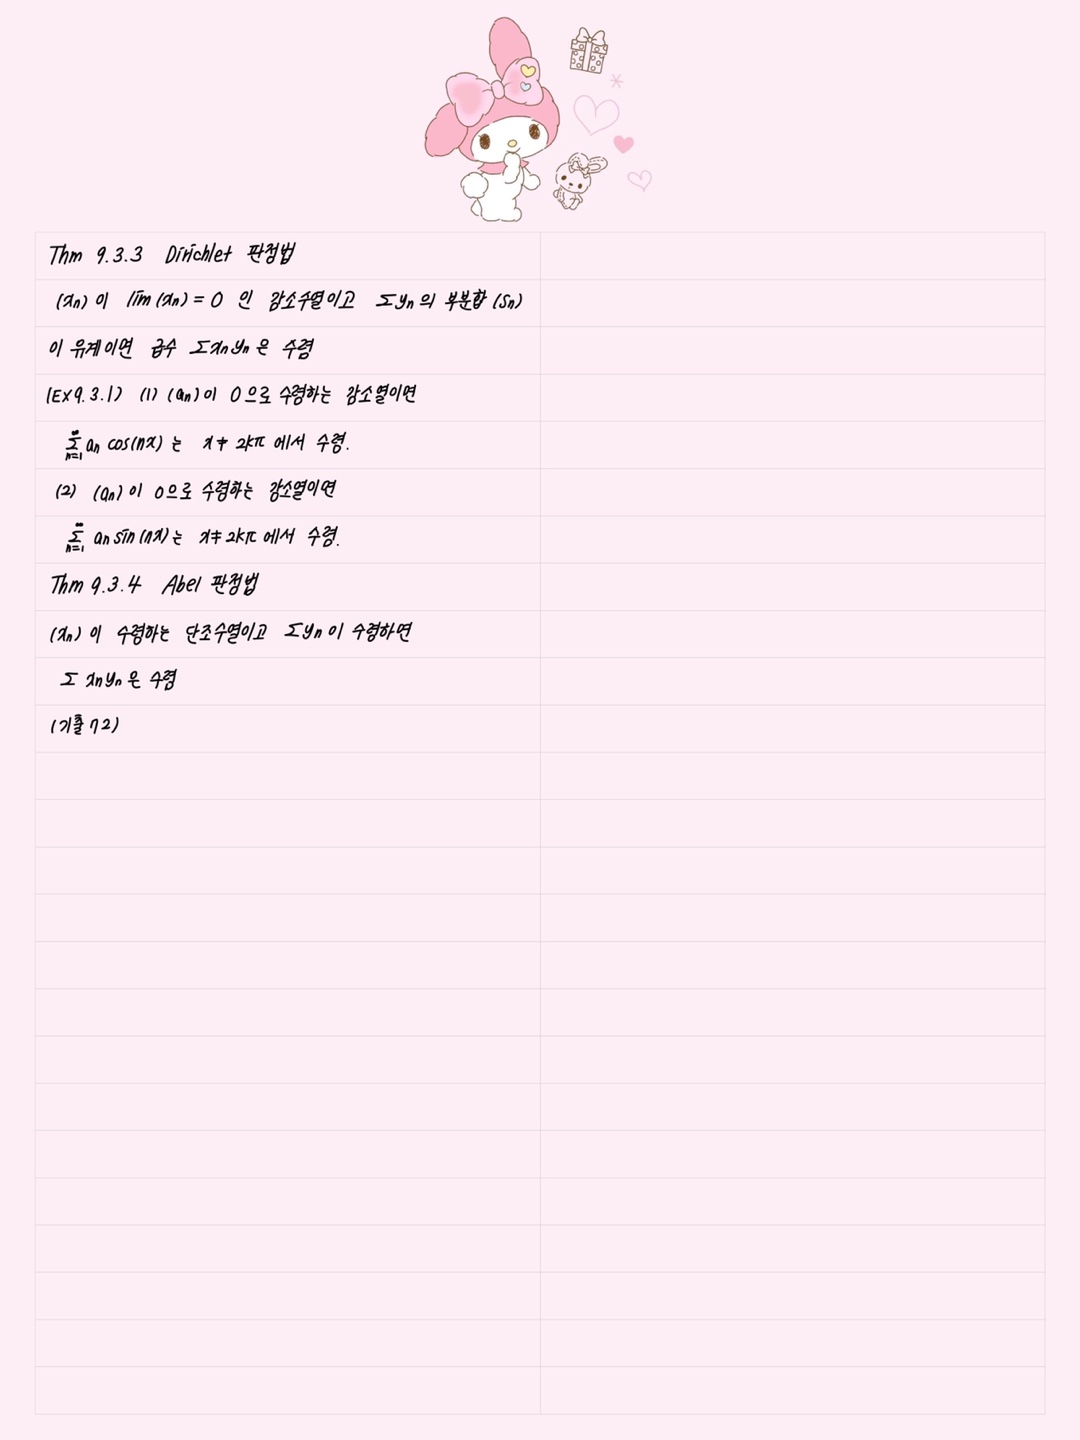 Thm 9.3.3 Dirichlet 판정법
(xn)이 lim(xn)=0 인 감소수열이고 Σyn의 부분합 (Sn)
이 유계이면 급수 Σxnyn은 수렴
(EX9.3.1) (1) (an)이 0으로 수렴하는 감소열이면
∞Σn=1 an cos(nx)는 x≠2kπ에서 수렴.
(2) (an)이 0으로 수렴하는 감소열이면
∞Σn=1 an sin(nx)는 x≠2kπ에서 수렴.
Thm 9.3.4 Abel 판정법
(xn)이 수렴하는 단조수열이고 Σyn이 수렴하면
Σ xnyn은 수렴
(기출 72)